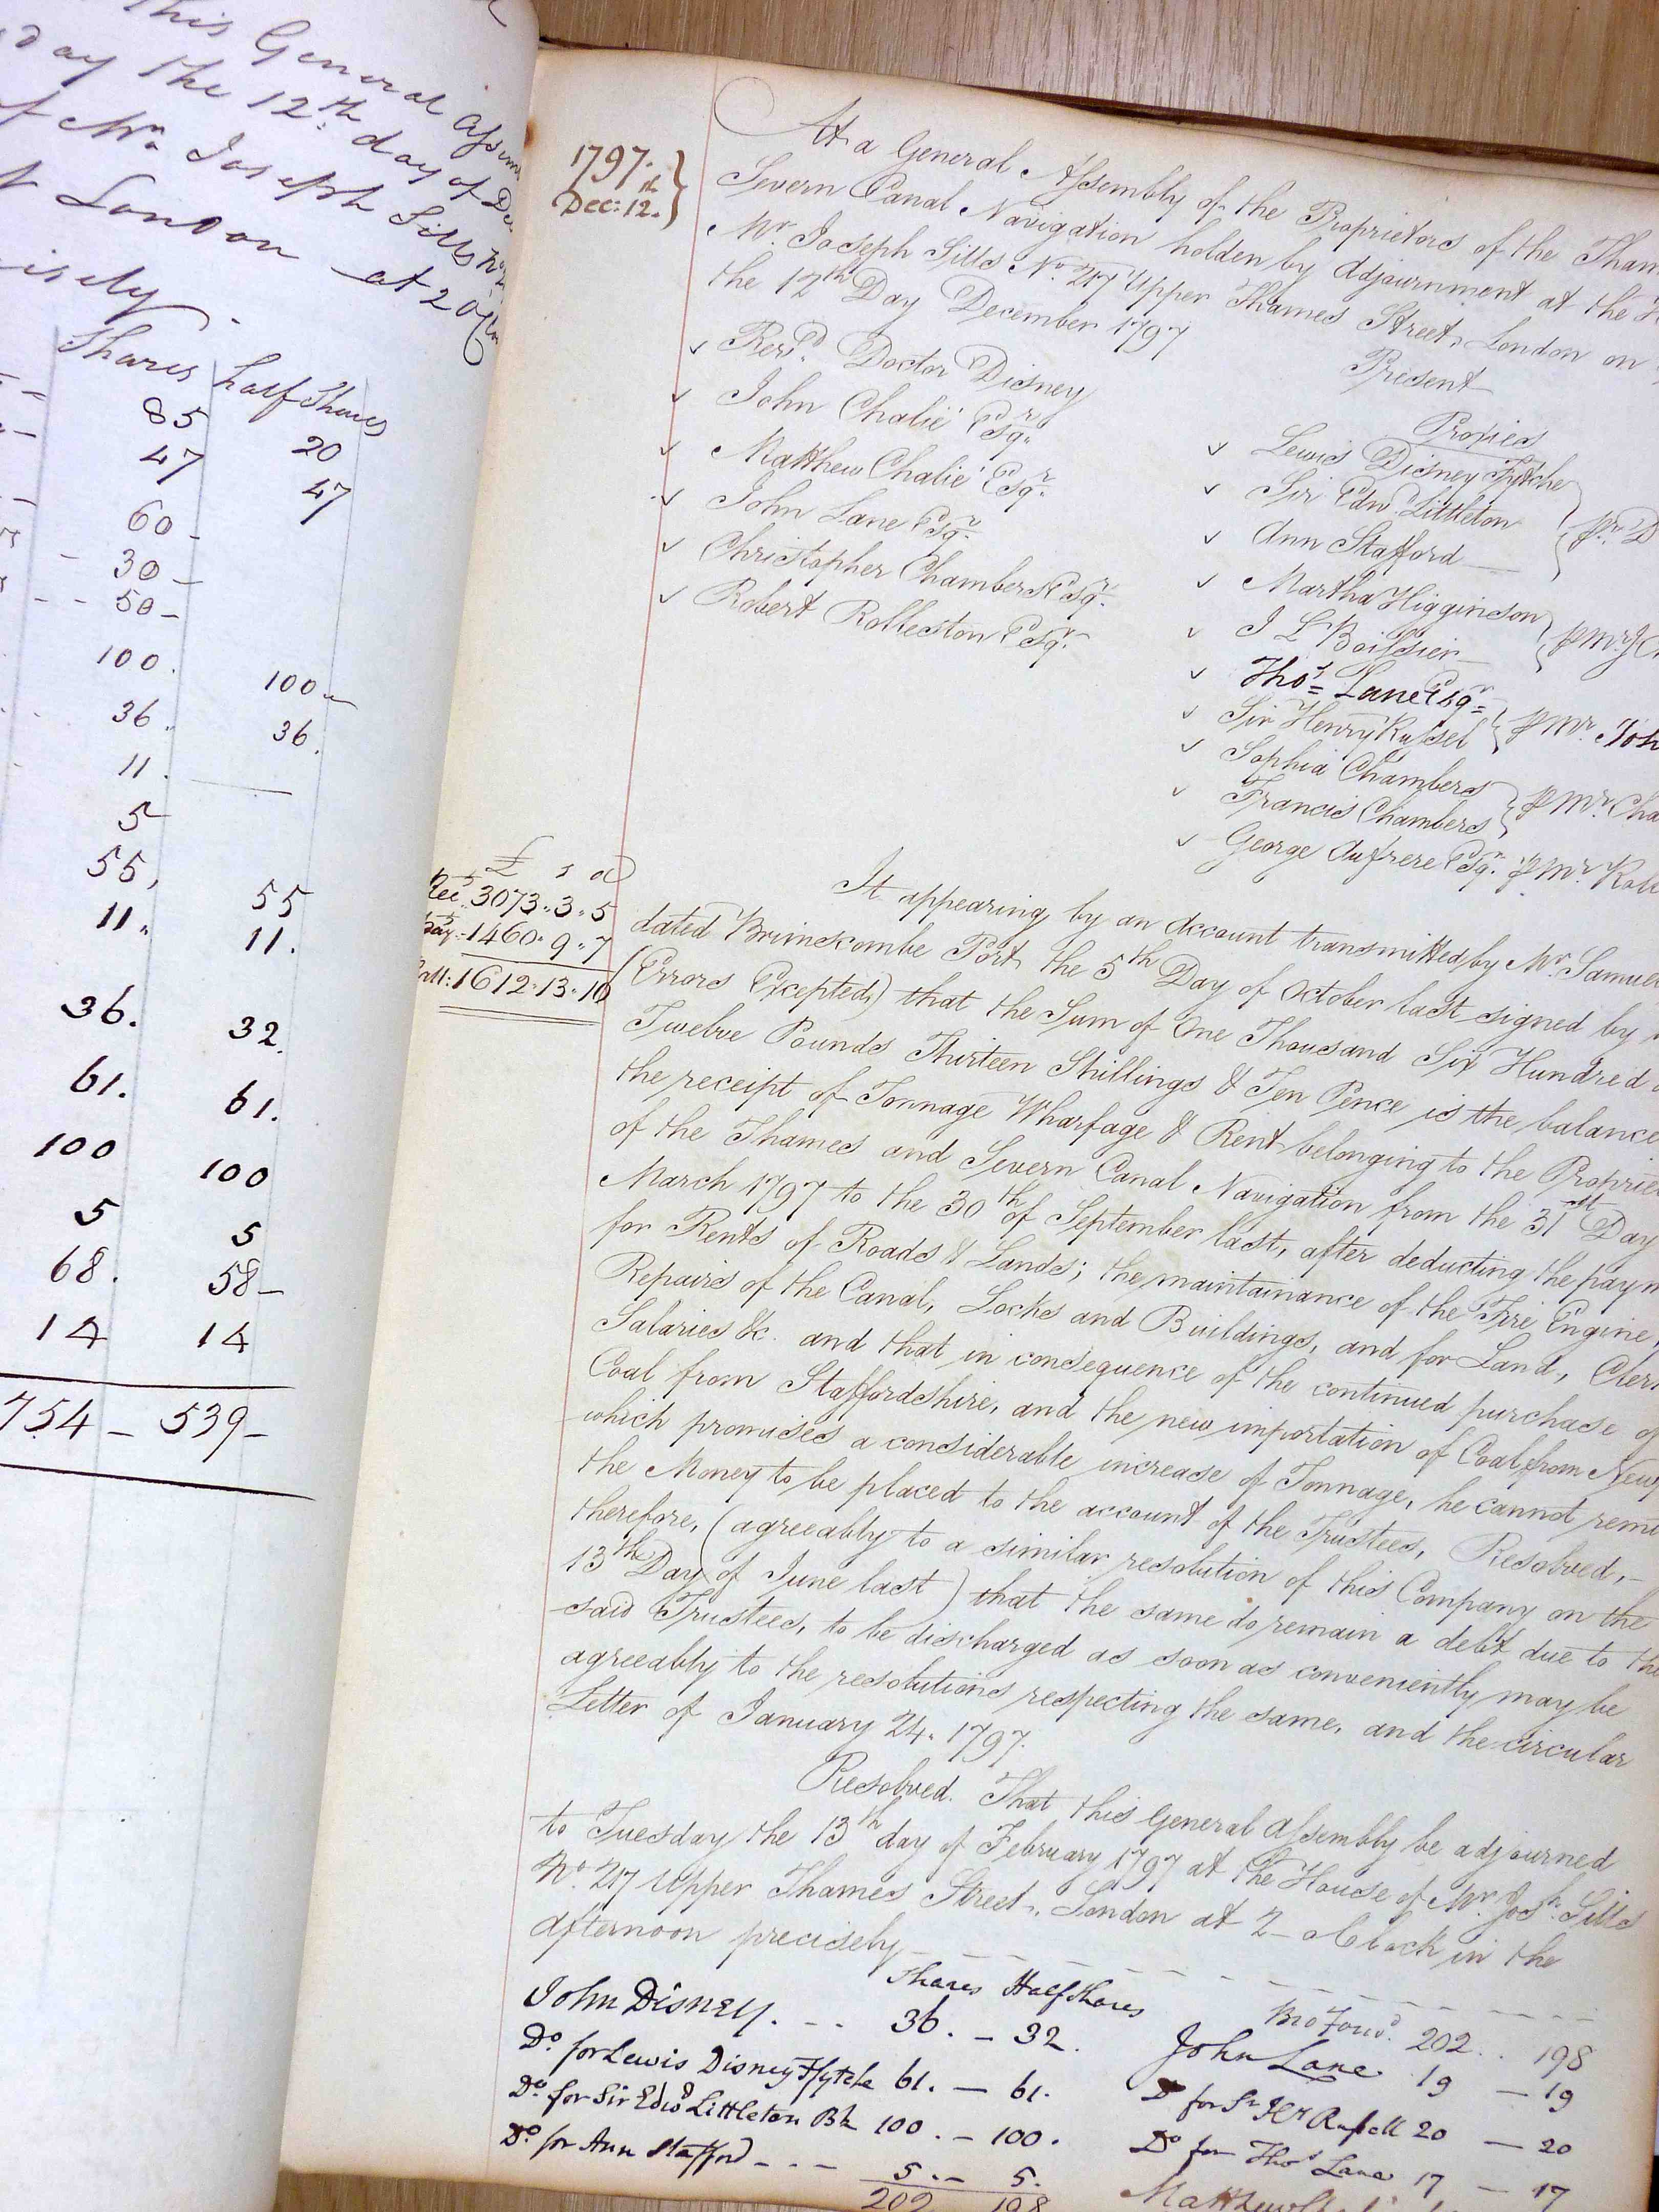 This General Assem
day the 12th day of De
of Mr. Joseph Sills No.
London at 2 oClo
isely
Shares half Shares
85 20
47 47
60 -
30 -
50 -
100. 100
36. 36.
11.
5
55, 55
11. 11.
36. 32.
61. 61.
100 100
5 5
68. 58-
14 14
754 - 539-
1797.
Dec: 12th
At a General Assembly of the Proprietors of the Tham
Severn Canal Navigation holden by Adjournment at the H
Mr. Joseph Sills No. 217 Upper Thames Street, London on
the 12th Day December 1797
Present
Revd. Doctor Disney
John Chalié Esqr.
Matthew Chalié Esqr.
John Lane Esqr.
Christopher Chambers Esqr.
Robert Rolleston Esqr.
Proxies
Lewis Disney Fytche
Sir Edwd. Littleton
Ann Stafford
pr. D
Martha Higginson
I L Boissier
p Mr. J C
Thos. Lane Esqr.
Sir Henry Russel
p Mr. Joh
Sophia Chambers
Francis Chambers
p Mr. Cha
George Aufrere Esqr. p Mr. Roll
£ s d
Rec. 3073..3..5
Pay. 1460..9..7
1612..13..10
It appearing by an Account transmitted by Mr. Samuel
dated Brimscombe Port the 5th Day of October last signed by
(Errors Excepted,) that the Sum of One Thousand Six Hundred
Twelve Pounds Thirteen Shillings & Ten Pence is the balance
the receipt of Tonnage Wharfage & Rent belonging to the Proprie
of the Thames and Severn Canal Navigation from the 31st Day
March 1797 to the 30th of September last, after deducting the paym
for Rents of Roads & Lands; the maintainance of the Fire Engine,
Repairs of the Canal, Locks and Buildings, and for Land, Cler
Salaries &c. and that in consequence of the continued purchase of
Coal from Staffordshire, and the new importation of Coal from New
which promises a considerable increase of Tonnage, he cannot remi
the Money to be placed to the account of the Trustees, Resolved,-
therefore, (agreeably to a similar resolution of this Company on the
13th Day of June last) that the same do remain a debt due to the
said Trustees, to be discharged as soon as conveniently may be
agreeably to the resolutions respecting the same, and the circular
Letter of January 24. 1797.
Resolved. That this General Assembly be adjourned
to Tuesday the 13th day of February 1797 at the House of Mr. Josh. Sills
No. 217 Upper Thames Street, London at 2 oClock in the
afternoon precisely
Shares Half Shares
John Disney. 36. - 32.
Do. for Lewis Disney Ffytche 61. - 61.
Do. for Sir Edwd. Littleton Bt. 100. - 100.
Do. for Ann Stafford 5. - 5.
202 198
Bro Forwd. 202.. 198
John Lane 19 - 19
Do for Sr. Hy Russell 20 - 20
Do for Thos Lane 17 - 17